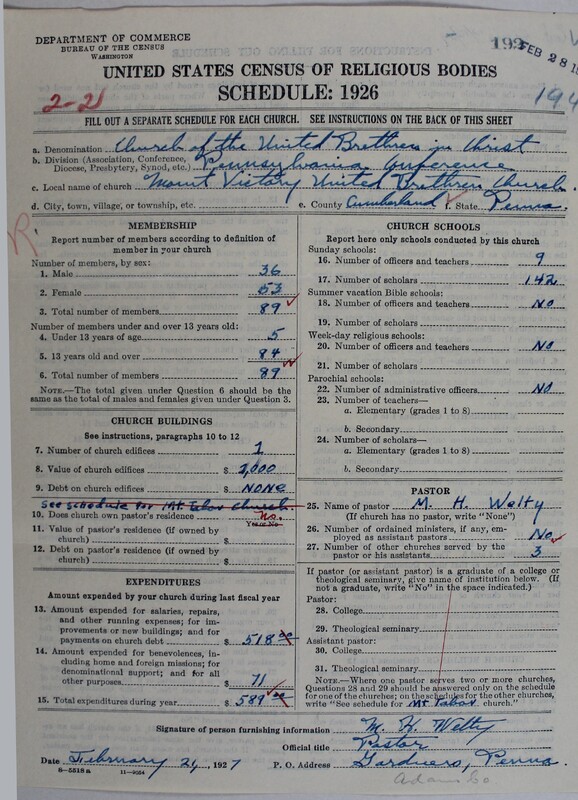 DEPARTMENT OF COMMERCE
BUREAU OF THE CENSUS
WASHINGTON
192
FEB 28 19
UNITED STATES CENSUS OF RELIGIOUS BODIES
2-21
SCHEDULE: 1926
194
FILL OUT A SEPARATE SCHEDULE FOR EACH CHURCH. SEE INSTRUCTIONS ON THE BACK OF THIS SHEET
a. Denomination Church of the United Brethren in Christ
b. Division (Association, Conference, Diocese, Presbytery, Synod, etc.) Pennsylvania Conference
c. Local name of church Mount Victory United Brethren Church.
d. City, town, village, or township, etc. e. County Cumberland f. State Penna.
R
MEMBERSHIP
Report number of members according to definition of
member in your church
Number of members, by sex:
1. Male 36
2. Female 53
3. Total number of members 89
Number of members under and over 13 years old:
4. Under 13 years of age 5
5. 13 years old and over 84
6. Total number of members 89
NOTE.—The total given under Question 6 should be
same as the total of males and females given under Question 3.
CHURCH BUILDINGS
See instructions, paragraphs 10 to 12
7. Number of church edifices 1
8. Value of church edifices $ 2,000
9. Debt on church edifices $ NONE
See schedule for Mt. Tabor Church.
10. Does church own pastor's residence No.
Yes or No
11. Value of pastor's residence (if owned by
church) $
12. Debt on pastor's residence (if owned by
church) $
EXPENDITURES
Amount expended by your church during last fiscal year
13. Amount expended for salaries, repairs,
and other running expenses; for im-
provements or new buildings; and for
payments on church debt $ 518 00
14. Amount expended for benevolences,
including home and foreign missions; for
denominational support; and for all
other purposes 71
15. Total expenditures during year $ 589 00
CHURCH SCHOOLS
Report here only schools conducted by this church
Sunday schools:
16. Number of officers and teachers 9
17. Number of scholars 142
Summer vacation Bible schools:
18. Number of officers and teachers No
19. Number of scholars
Week-day religious schools:
20. Number of officers and teachers No
21. Number of scholars
Parochial schools:
22. Number of administrative officers No
23. Number of teachers—
a. Elementary (grades 1 to 8)
b. Secondary
24. Number of scholars—
a. Elementary (grades 1 to 8)
b. Secondary
PASTOR
25. Name of pastor M. H. Welty
(If church has no pastor, write "None")
26. Number of ordained ministers, if any, em-
ployed as assistant pastors No
27. Number of other churches served by the
pastor or his assistants 3
If pastor (or assistant pastor) is a graduate of a college or
theological seminary, give name of institution below. (If
not a graduate, write "No" in the space indicated.)
Pastor:
28. College
29. Theological seminary
Assistant pastor:
30. College
31. Theological seminary
NOTE.—Where one pastor serves two or more churches,
Questions 28 and 29 should be answered only on the schedule
for one of the churches; on the schedules for the other churches,
write "See schedule for Mt. Tabor church."
Signature of person furnishing information M. H. Welty
Official title Pastor
Date February 21, 1927 P. O. Address Gardners, Penna.
8-5518a 11-9054
Adams Co